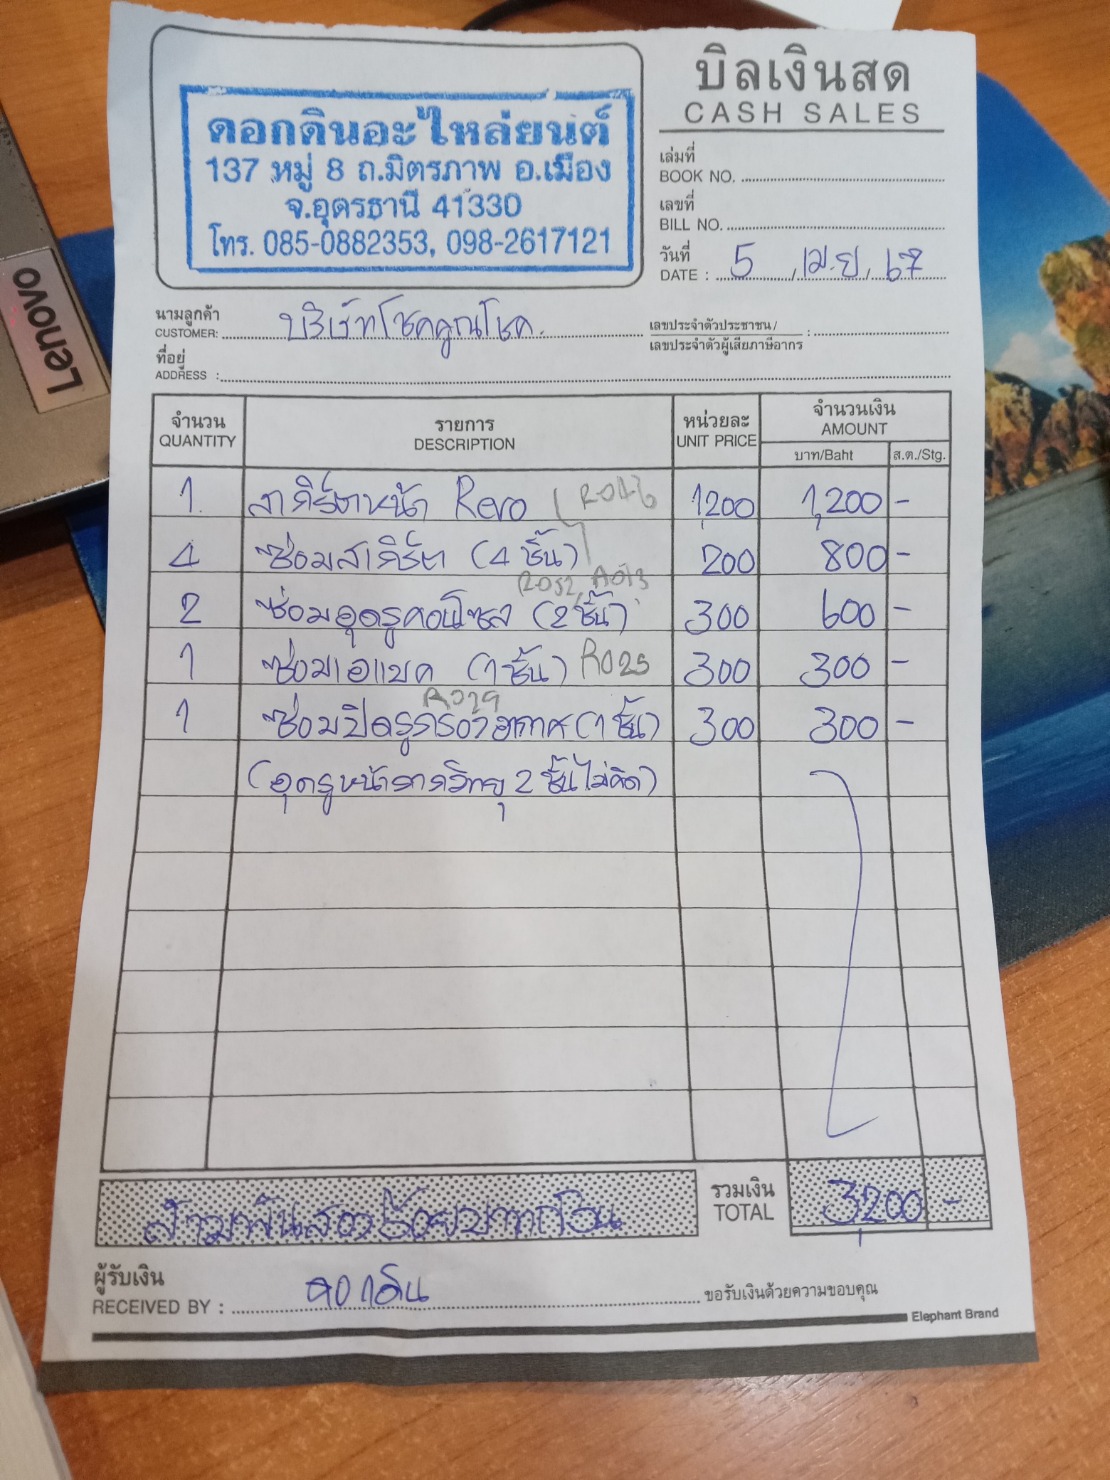 บิลเงินสด
CASH SALES
ดอกดินอะไหล่ยนต์
137 หมู่ 8 ถ.มิตรภาพ อ.เมือง
จ.อุดรธานี 41330
โทร. 085-0882353, 098-2617121
เล่มที่
BOOK NO.
เลขที่
BILL NO.
วันที่
DATE : 5 เม.ย. 67
นามลูกค้า
CUSTOMER: บริษัทโชคคูณโชค
เลขประจำตัวประชาชน/
เลขประจำตัวผู้เสียภาษีอากร :
ที่อยู่
ADDRESS :
จำนวน รายการ หน่วยละ จำนวนเงิน
QUANTITY DESCRIPTION UNIT PRICE AMOUNT
บาท/Baht ส.ต./Stg.
1 หน้า Revo 1,200 1,200 -
4 ซ่อม (4 ชิ้น) 200 800 -
R052, A013
2 ซ่อมอุดรูคอนโซล (2 ชิ้น) 300 600 -
1 ซ่อมเอแบค (1 ชิ้น) R025 300 300 -
A029
1 ซ่อมปิดรูกรองอากาศ (1 ชิ้น) 300 300 -
(อุดรูหน้ากากวิทยุ 2 ชิ้นไม่คิด)
สามพันสองร้อยบาทถ้วน
รวมเงิน
TOTAL 3,200 -
ผู้รับเงิน
RECEIVED BY : ดอกดิน
ขอรับเงินด้วยความขอบคุณ
Elephant Brand
Lenovo